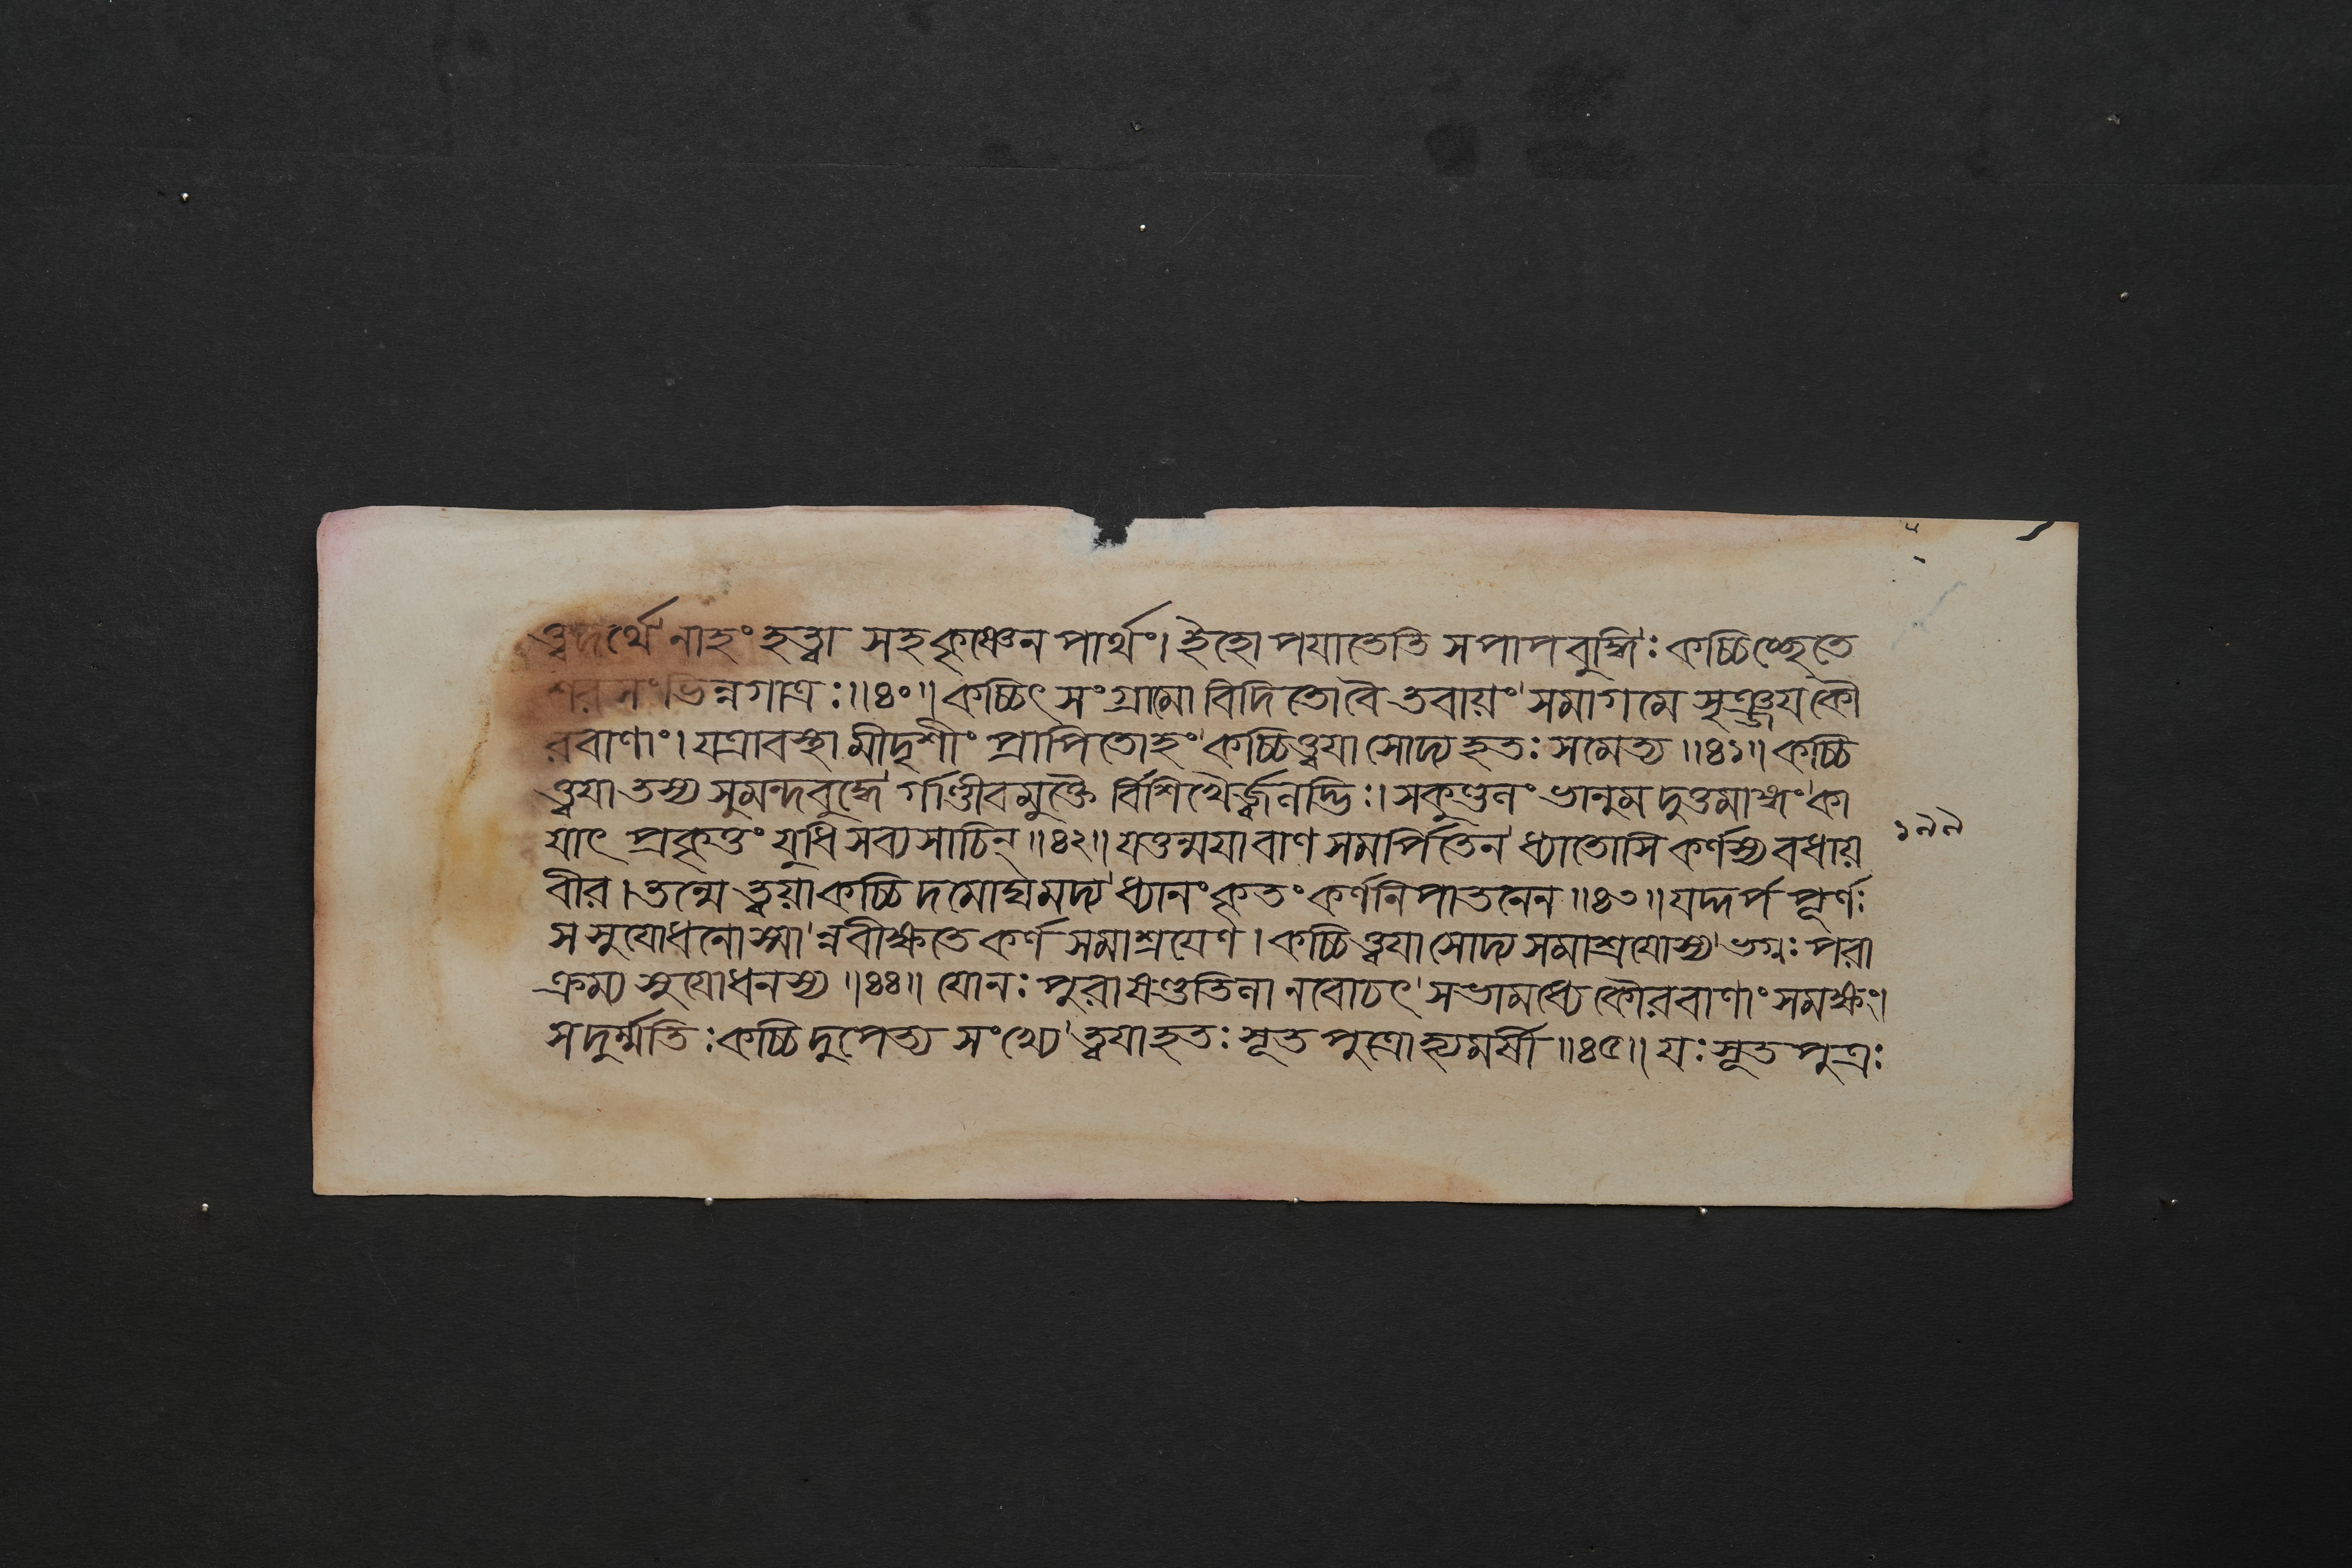 ত্ত্বদর্থে নাহং হত্বা সহকৃষ্ণেন পার্থং। ইহোপযাতেতি সপাপবুদ্ধিঃ কচ্চিচ্ছেতে
শরসংভিন্নগাত্রঃ॥৪০॥ কচ্চিৎ সংগ্রামো বিদিতো বৈ তবায়ং সমাগমে সৃঞ্জয কৌ
রবাণাং। যত্রাবস্থামীদৃশীং প্রাপিতোহং কচ্চিত্ত্বযা সোদ্য হতঃ সমেত্য॥৪১॥ কচ্চি
ত্ত্বযা তস্য সুমন্দবুদ্ধে র্গাণ্ডীবমুক্তৈ র্বিশিখৈর্জ্জ্বলদ্ভিঃ। সকুণ্ডলং ভানুমদুত্তমাঙ্গং কা
যাৎ প্রকৃত্তং যুধি সব্যসাচিন্॥৪২॥ যত্তন্মযা বাণ সমর্পিতেন ধ্যাতোসি কর্ণস্য বধায়
বীর। তন্মে ত্ত্বয়া কচ্চিদমোঘমদ্য ধ্যানং কৃতং কর্ণনিপাতনেন॥৪৩॥ যদ্দর্প পূর্ণঃ
স সুযোধনোস্মা ন্নবীক্ষতে কর্ণ সমাশ্রযেণ। কচ্চিত্ত্বযা সোদ্য সমাশ্রযোস্য ভগ্নঃ পরা
ক্রম্য সুযোধনস্য॥৪৪॥ যোনঃ পুরা ষণ্ডতিলা নবোচৎ সভামধ্যে কৌরবাণাং সমক্ষং।
স দুর্ম্মতিঃ কচ্চিদুপেত্য সংখ্যে ত্ত্বযা হতঃ সূতপুত্রোহ্যমর্ষী॥৪৫॥ যঃ সূতপুত্রঃ
১৭৭